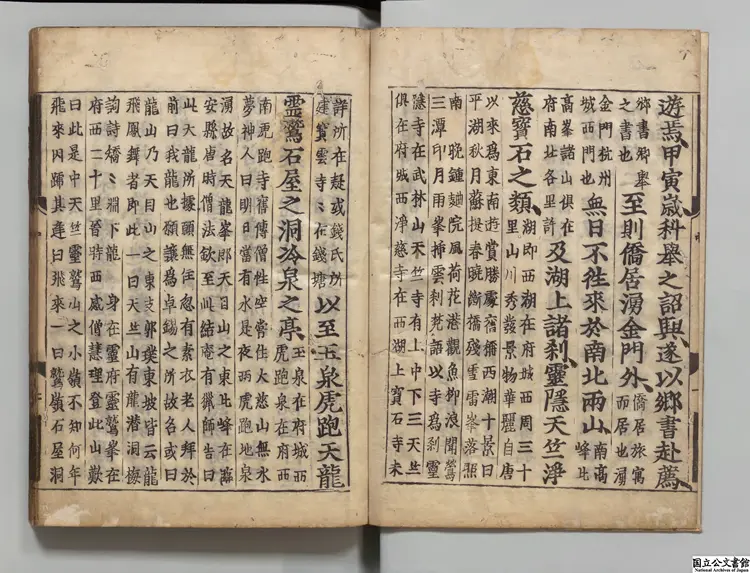 遊焉甲寅歲科舉之詔興遂以鄉書赴薦
鄉書鄉舉
之書也
至則僑居湧金門外
僑居旅寓
而居也湧
金門杭州
城西門也
無日不往來於南北兩山
南高
峰北
高峯諸山俱在
府南北各里許
及湖上諸刹靈隱天竺淨
慈寶石之類
湖即西湖在府城西周三十
里山川秀發景物華麗自唐
以來爲東南遊賞勝處舊稱西湖十景曰
平湖秋月蘇堤春曉斷橋殘雪雷峯落照
南晚鐘麯院風荷花港觀魚柳浪聞鶯
三潭印月兩峰揷雲刹梵語以寺爲刹靈
隱寺在武林山天竺寺有上中下三天竺
俱在府城西淨慈寺在西湖上寶石寺未
詳所在疑或錢氏所
建寶雲寺〻在錢塘
以至玉泉虎跑天龍
靈鷲石屋之洞冷泉之亭
玉泉在府城西
虎跑泉在府西
南虎跑寺舊傳僧性空常住大慈山無水
夢神人曰明日當有水是夜兩虎跑地泉
湧故名天龍峯即天目山之東北峰在臨
安縣唐時僧法欽至此結庵有獵師告曰
此天龍所據頭無住忽有素衣老人拜於
前曰我龍也願讓爲卓錫之所故名或曰
龍山乃天目山之東支郭璞東坡皆云龍
飛鳳舞者即此一曰天竺山有龍潛洞梅
詢詩矯〻淵下龍身在靈府靈鷲峯在
府西二十里晉時西咸僧慧理登此山歎
曰此是中天竺靈鷲山之小嶺不知何年
飛來因歸其建曰飛來一曰鷲嶺石屋洞
国立公文書館
National Archives of Japan